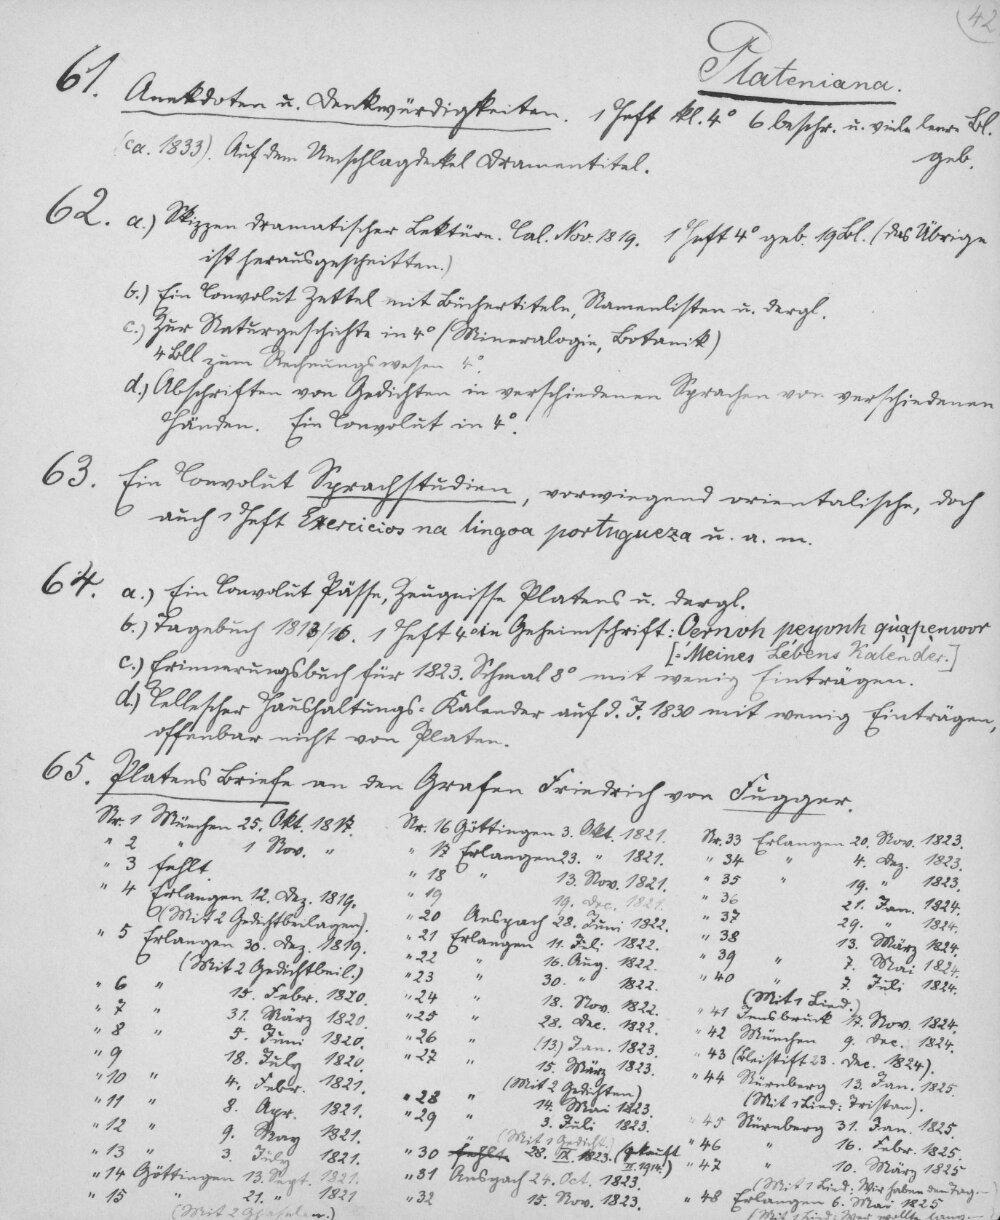 (42
Plateniana.
61. Anekdoten u. Denkwürdigkeiten. 1 Heft kl. 4° 6 beschr. u. viele leere Bl.
geb.
(ca. 1833). Auf dem Umschlagdeckel Dramentitel.
62. a.) Skizzen dramatischer Lektüre. Cal. Nov. 1819. 1 Heft 4° geb. 19 Bl. (das Übrige
ist herausgeschnitten.)
b.) Ein Convolut Zettel mit Büchertiteln, Namenlisten u. dergl.
c.) Zur Naturgeschichte in 4° (Mineralogie, Botanik)
4 Bll zum Rechnungswesen 4°.
d.) Abschriften von Gedichten in verschiedenen Sprachen von verschiedenen
Händen. Ein Convolut in 4°.
63. Ein Convolut Sprachstudien, vorwiegend orientalische, doch
auch 1 Heft Exercicios na lingoa portugueza u. a. m.
64. a.) Ein Convolut Pässe, Zeugnisse Platens u. dergl.
b.) Tagebuch 1813/16. 1 Heft 4° in Geheimschrift: Oernoh peyonh quapenwor
[= Meines Lebens Kalender.]
c.) Erinnerungsbuch für 1823. Schmal 8° mit wenig Einträgen.
d.) Cellescher Haushaltungs-Kalender auf d. J. 1830 mit wenig Einträgen,
offenbar nicht von Platen.
65. Platens Briefe an den Grafen Friedrich von Fugger.
Nr. 1 München 25. Okt. 1817.
" 2 " 1 Nov. "
" 3 fehlt.
" 4 Erlangen 12. Dez. 1819.
(Mit 2 Gedichtbeilagen).
" 5 Erlangen 30. Dez. 1819.
(Mit 2 Gedichtbeil.)
" 6 " 15. Febr. 1820.
" 7 " 31. März 1820.
" 8 " 5. Juni 1820.
" 9 18. July 1820.
" 10 " 4. Febr. 1821.
" 11 " 8. Apr. 1821.
" 12 " 9. May 1821.
" 13 " 3. July 1821.
" 14 Göttingen 13. Sept. 1821.
" 15 " 21. " 1821
(Mit 2 Ghaselen.)
Nr. 16 Göttingen 3. Okt. 1821.
" 17 Erlangen 23. " 1821.
" 18 " 13. Nov. 1821.
" 19 19. Dec. 1821.
" 20 Anspach 28. Juni 1822.
" 21 Erlangen 11. Juli 1822.
" 22 " 16. Aug. 1822.
" 23 " 30. " 1822.
" 24 " 18. Nov. 1822.
" 25 " 28. Dec. 1822.
" 26 " (13.) Jan. 1823.
" 27 " 15. März 1823.
(Mit 2 Gedichten)
" 28 " 14. Mai 1823.
" 29 " 3. Juli 1823.
(Mit 1 Gedicht.)
" 30 fehlt. 28. IX. 1823. (gekauft
II. 1914.)
" 31 Anspach 24. Oct. 1823.
" 32 15. Nov. 1823.
Nr. 33 Erlangen 20. Nov. 1823.
" 34 " 4. Dez. 1823.
" 35 " 19. " 1823.
" 36 21. Jan. 1824.
" 37 29. " 1824.
" 38 13. März 1824.
" 39 " 7. Mai 1824.
" 40 " 7. Juli 1824.
(Mit 1 Lied.)
" 41 Innsbruck 17. Nov. 1824.
" 42 München 9. Dec. 1824.
" 43 (Bleistift 23. Dec. 1824).
" 44 Nürnberg 13. Jan. 1825.
(Mit 1 Lied: Tristan).
" 45 Nürnberg 31. Jan. 1825.
" 46 " 16. Febr. 1825.
" 47 " 10. März 1825
(Mit 1 Lied: Wir haben den Tag
" 48 Erlangen 6. Mai 1825
(Mit 1 Lied: Wer wollte